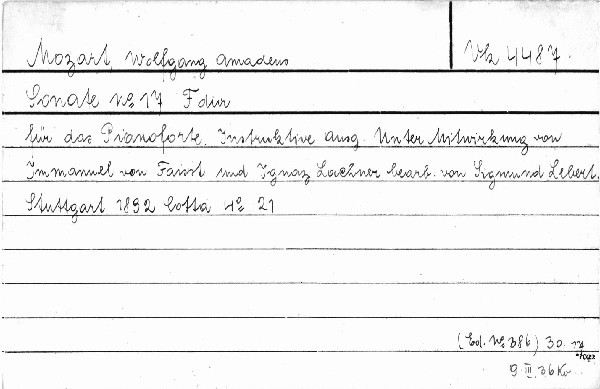 Mozart, Wolfgang Amadeus
Vh 4487.
Sonate No 17 F dur
für das Pianoforte. Instruktive ausg. Unter Mitwirkung von
Immanuel von Faisst und Ignaz Lachner bearb. von Sigmund Lebert.
Stuttgart 1892 Cotta 4o 21
(Ed. No 386) 30.
9. III. 36 Kv